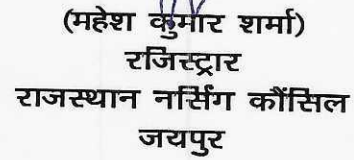 (महेश कुमार शर्मा)
रजिस्ट्रार
राजस्थान नर्सिंग कौंसिल
जयपुर